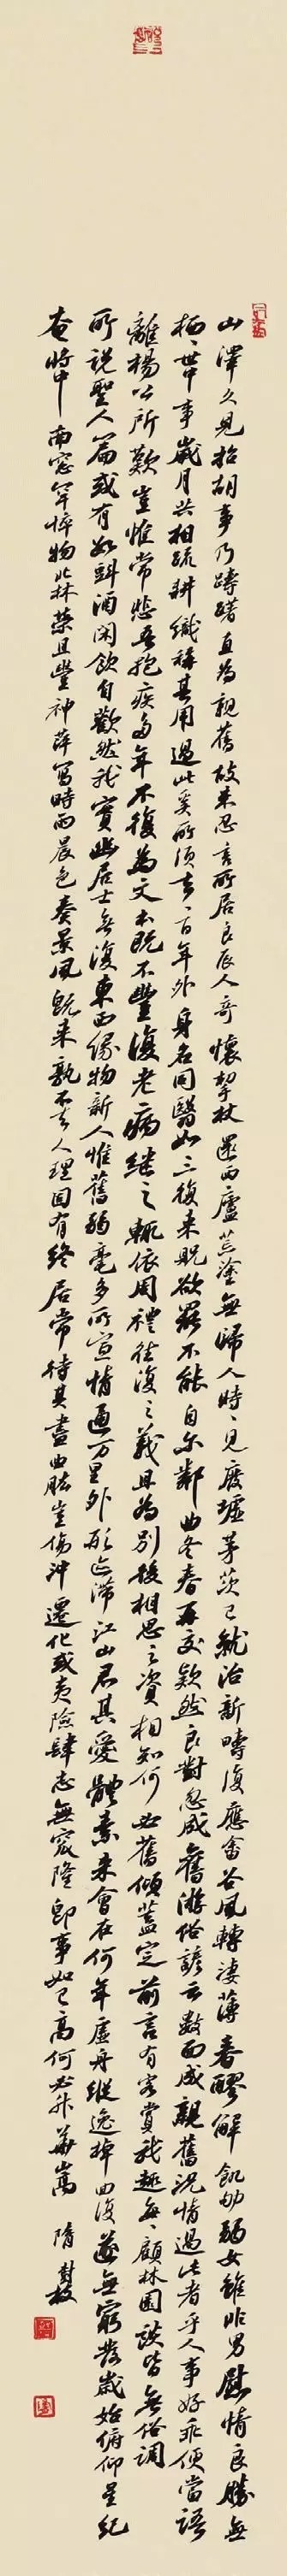 山澤久見招胡事乃躊躇直為親舊故未忍言所居良辰入奇懷挈杖還西廬荒塗無歸人時〻見廢墟茅茨已就治新疇復應畬谷風轉淒薄春醪解飢劬弱女雖非男慰情良勝無
栖〻世中事歲月共相疏耕織稱其用過此奚所須去〻百年外身名同翳如三復來貺欲罷不能自爾鄰曲冬春再交欵然良對忽成舊游俗諺云數面成親舊況情過此者乎人事好乖便當語
離楊公所歎豈惟常悲吾抱疾多年不復為文本既不豐復老病繼之輒依周禮往復之義且為別後相思之資相知何必舊傾蓋定前言有客賞我趣每〻顧林園談皆無俗調
所說聖人篇或有數斟酒閑飲自歡然我實幽居士無復東西緣物新人惟舊弱毫多所宣情通万里外形迹滯江山君其愛體素來會在何年虛舟縱逸棹回復遂無窮發歲始俯仰星紀
奄將中南窗罕悴物北林榮且豐神萍寫時雨晨色奏景風既來孰不去人理固有終居常待其盡曲肱豈傷沖遷化或夷險肆志無窊隆即事如已高何必升華嵩 隋封